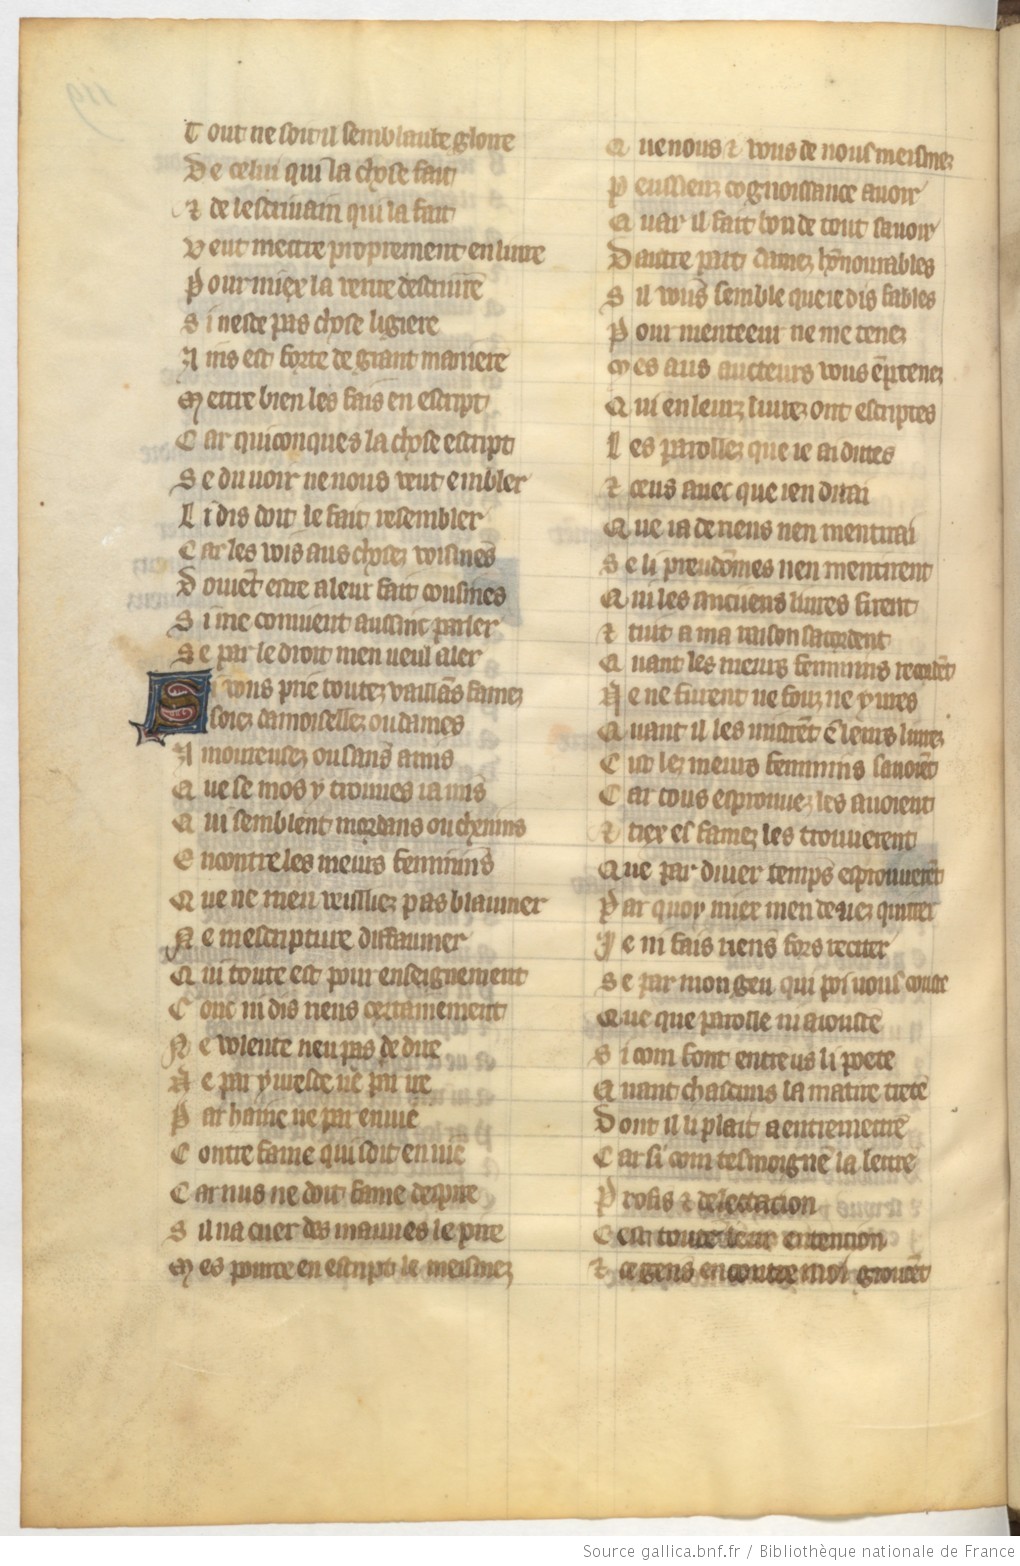 Tout ne soit il semblaule gloire
De celui qui la chose fait
Et de lescriuain qui la fait
Veut mettre proprement en liure
Pour miex la verite descriure
Si nest pas chose ligiere
Ains est forte de grant maniere
Mettre bien les fais en escript
Car quiconques la chose escript
Se du voir ne nous veut embler
Li dis doit le fait resembler
Car les vois aus choses voisines
Doiuēt estre a leur fait cousines
Si me conuient aussint parler
Se par le droit men veul aler
Si vous prie toutez vaillās famez
Soiez damoisellez ou dames
Amoureusez ou sans amis
Que se mos y trouues ia mis
Qui semblent mordans ou chenins
Encontre les meurs feminins
Que ne men veilliez pas blaumer
Ne mescripture diffaumer
Qui toute est pour enseignement
Conc ni dis riens certainement
Ne volente neu pas de dire
Ne par yuresce ne par ire
Par haine ne par enuie
Contre fame qui soit en vie
Car nus ne doit fame despire
Sil na cuer des mauues le pire
Mes pource en escript le meismez
Que nous et vous de nous meismez
Peussienz cognoissance auoir
Quar il fait bon de tout sauoir
Dautre part damez hōnourables
Sil vous semble que ie dis fables
Pour menteeur ne me tenez
Mes aus aucteurs vous ēprenez
Qui en leurz liurez ont escriptes
Les parollez que ie ai dites
Et ceus auec que ien dirai
Que ia de riens nen mentirai
Se li preudōmes nen mentirent
Qui les anciens liures firent
Et tuit a ma raison sacordent
Quant les meurs feminins recordēt
Ne ne furent ne fouz ne yures
Quant il les mistrēt ē leurs liurez
Cist lez meurs feminins sauoiēt
Car tous esprouuez les auoient
Et tiex es famez les trouuerent
Que par diuer temps esprouuerēt
Par quoy miex men deuez quiter
Je ni fais riens fors reciter
Se par mon geu qui poi vous couste
Que que parolle ni aiouste
Si com font entreus li poete
Quant chascuns la matire tretē
Dont il li plait a entremettre
Car si com tesmoigne la lettre
Profis et delectacion
Cest toute leur entencion
Et ce gens en contre moi groucēt
119
Source gallica.bnf.fr / Bibliothèque nationale de France